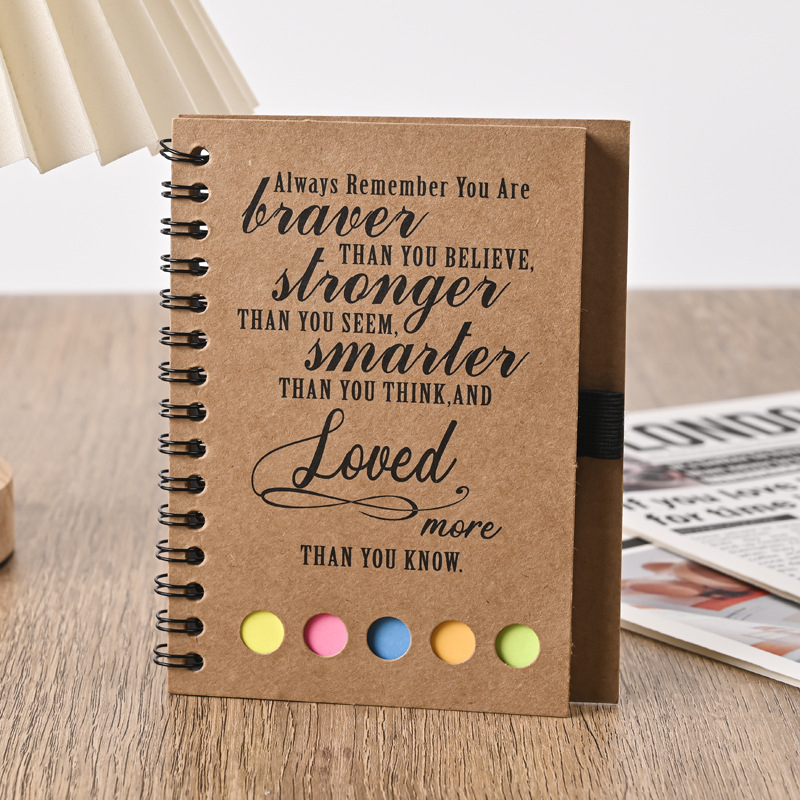 Always Remember You Are
braver
THAN YOU BELIEVE,
stronger
THAN YOU SEEM,
smarter
THAN YOU THINK,AND
Loved
more
THAN YOU KNOW.
LONDO
you love
for time